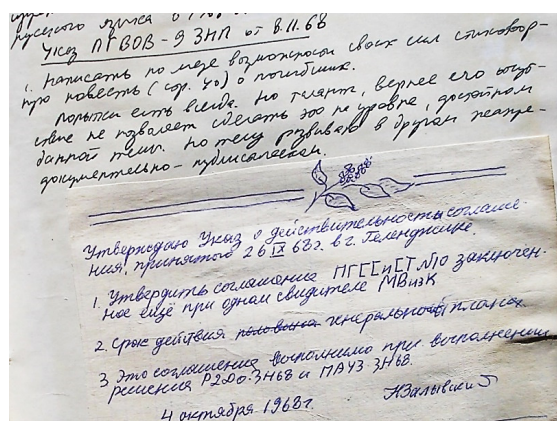 русского языка в
Указ ПГВОВ-9 ЗНП от 8.11.68
1. Написать по мере возможности своих сил стихотвор-
ную повесть (сор. 40) о погибших.
Попытки есть всегда. Но талант, вернее его отсут-
ствие не позволяет сделать это на уровне, достойном
данной темы. Но тему развиваю в другом жанре-
документально-публицистическом.
Утверждаю Указ о действительности соглаше-
ния, принятого 26 IX 68г. в г. Геленджике.
1. Утвердить соглашение ПГССиСТ №10 заключен-
ное ещё при одном свидетеле МВизК
2. Срок действия половина генеральной планах
3. Это соглашение выполнимо при выполнении
решения Р200-ЗН68 и ПАУЗ ЗН68.
4 октября 1968г. НЗалывский